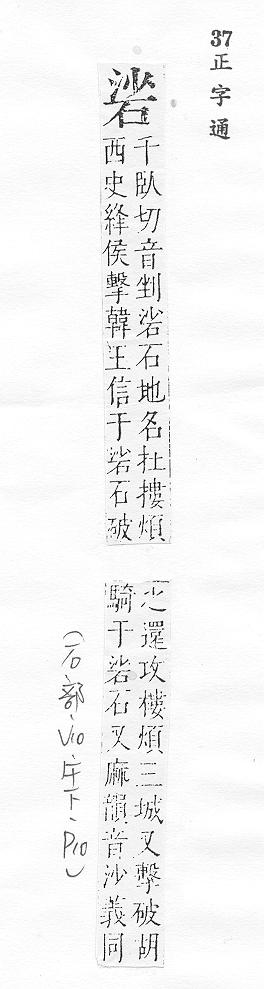 37 正字通
硰
千臥切音剉硰石地名在樓煩
西史絳侯擊韓王信于硰石破
之還攻樓煩三城又擊破胡
騎于硰石又麻韻音沙義同
(石部、V10、午下、P10)